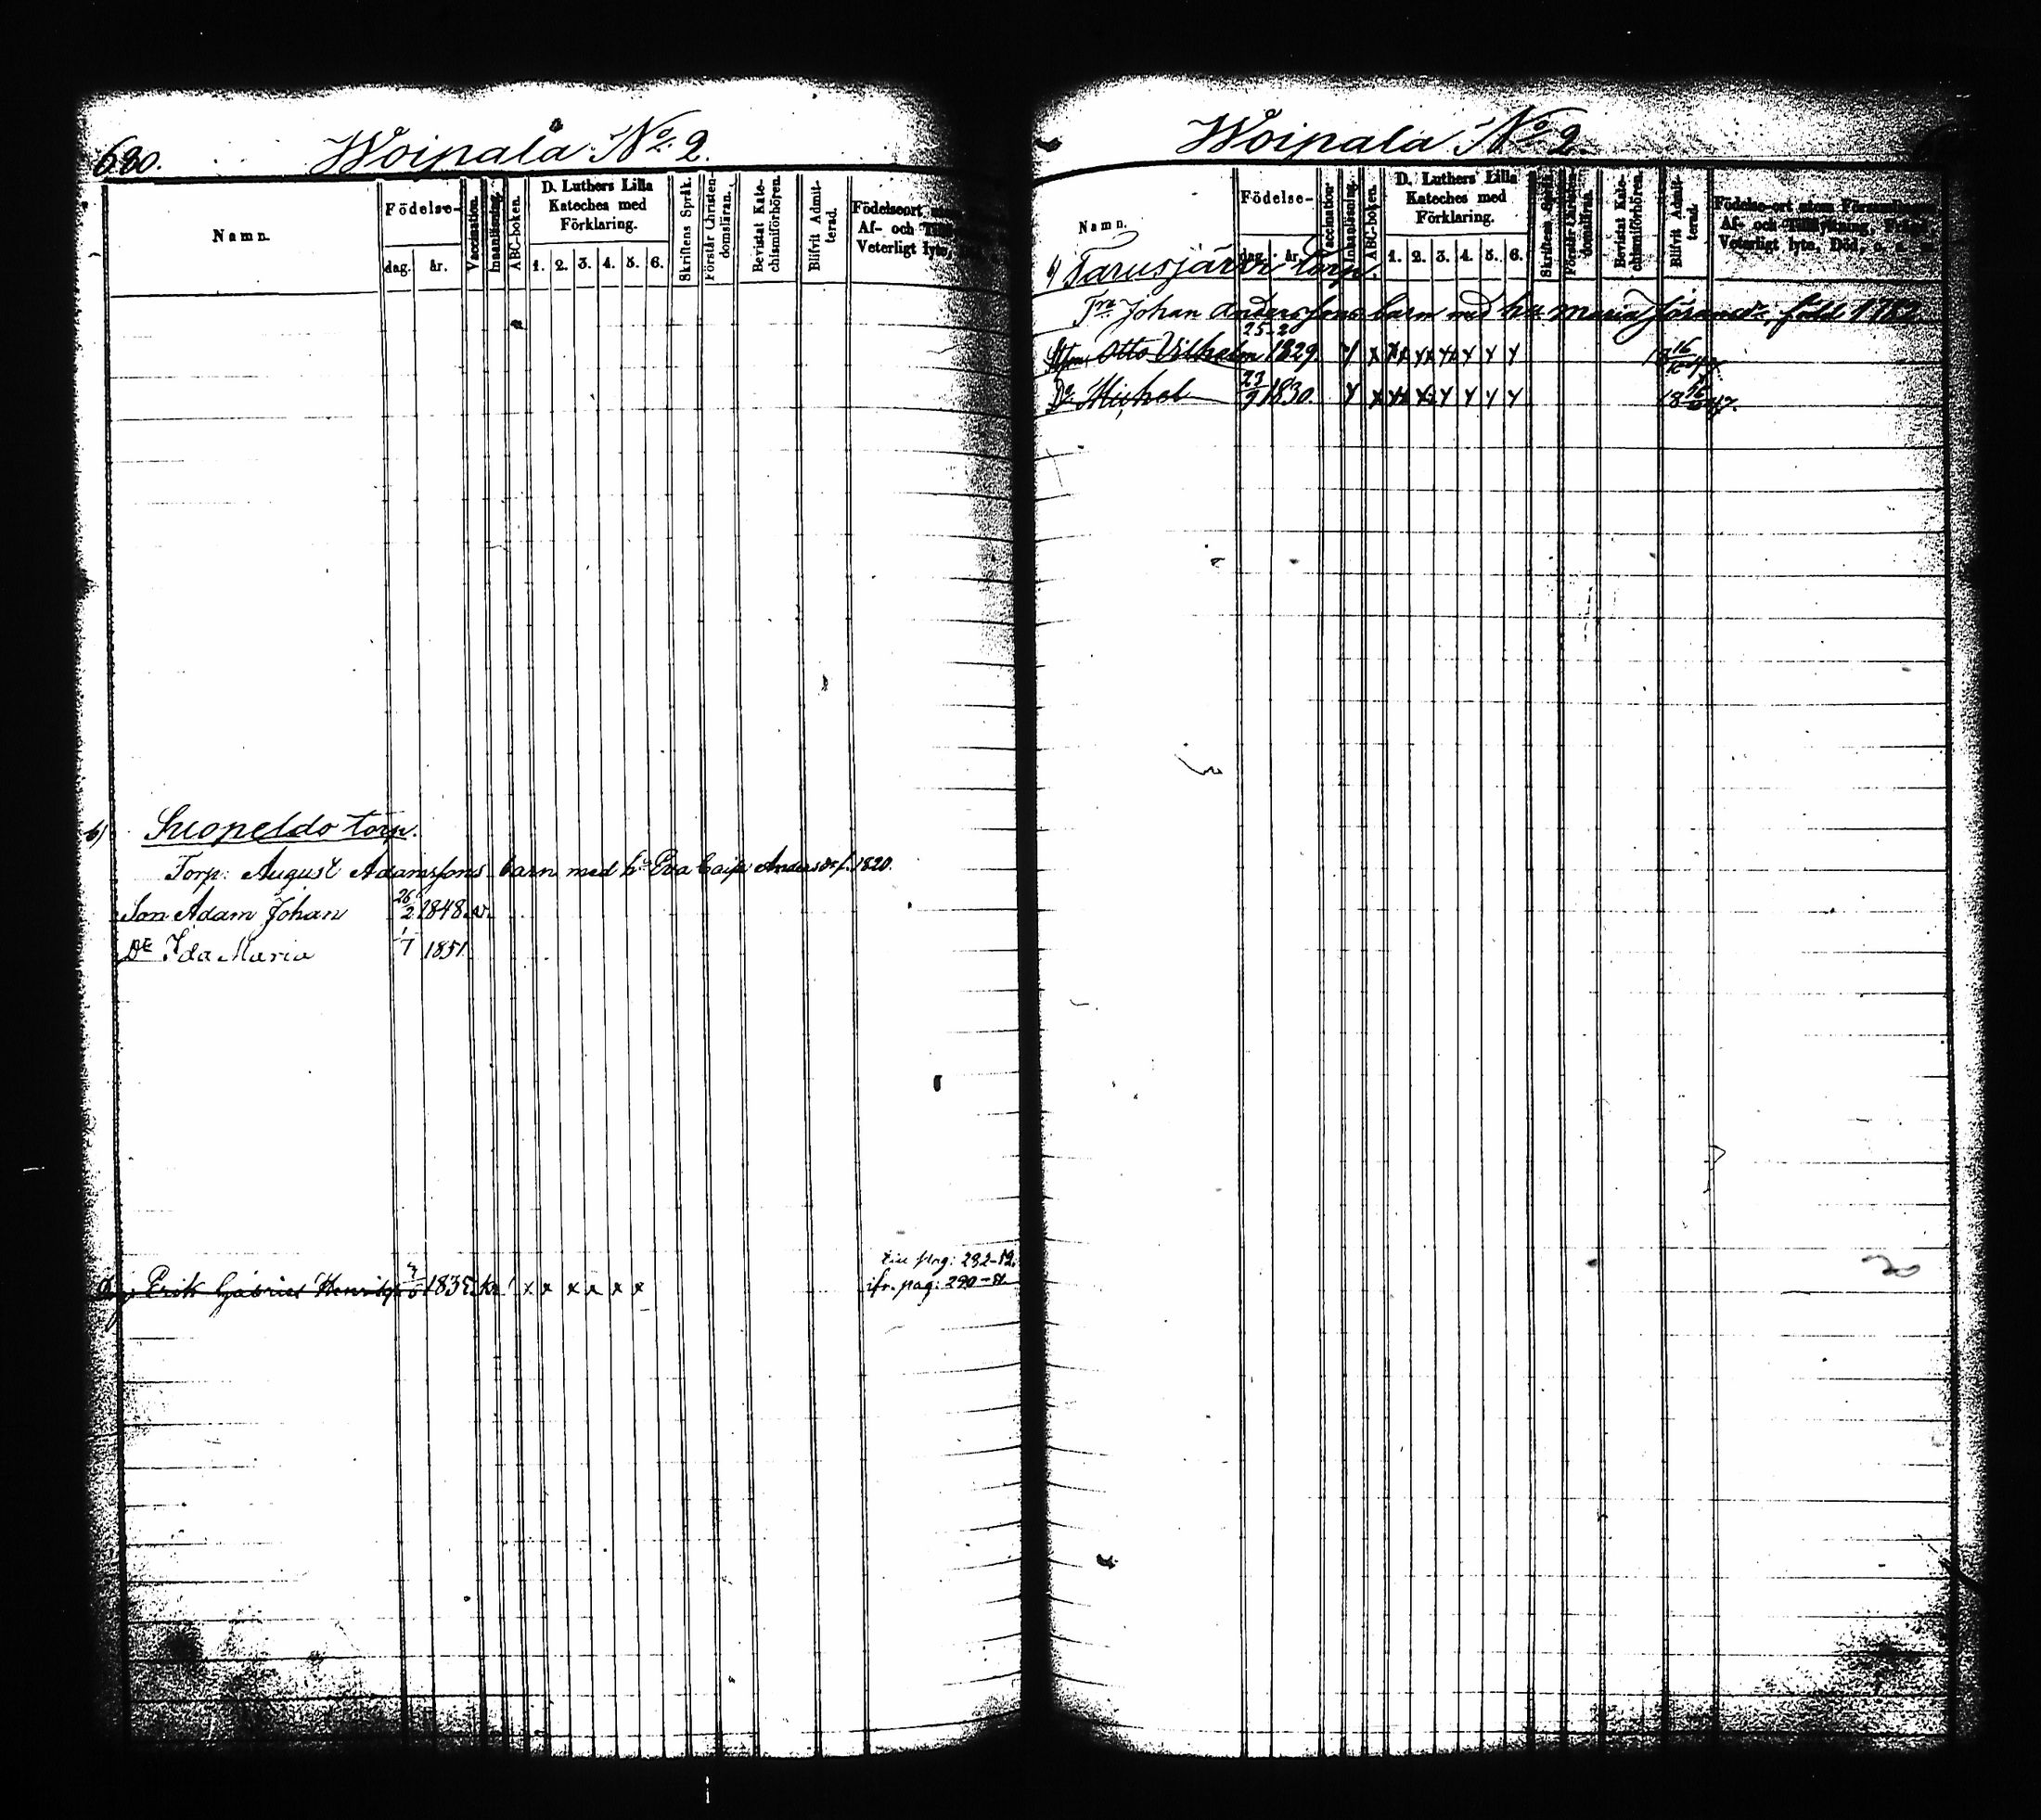 630.
Woipala No. 2.
Namn.
Födelse-
dag. år.
Vaccination.
Innanläsning.
ABC-boken.
D. Luthers Lilla
Kateches med
Förklaring.
1. 2. 3. 4. 5. 6.
Skriftens Språk.
Förstår Christen-
domsläran.
Bevistat Kate-
chismiförhören.
Blifvit Admit-
terad.
Födelseort
Af- och
Veterligt lyte,
b) Suopeldo torp.
Torp: August Adamssons barn med h: Eva Caisa Andersdr f. 1820.
Son Adam Johan 26/2 1848. v.
Dr Ida Maria 1/7 1851.
Erik Gabriel 1835. x x x x x x
pag: 232-
ifr. pag: 290-51.
Woipala No. 2.
Namn.
Födelse-
dag. år.
Vaccination.
Innanläsning.
ABC-boken.
D. Luthers Lilla
Kateches med
Förklaring.
1. 2. 3. 4. 5. 6.
Skriftens Språk.
Förstår Christen-
domsläran.
Bevistat Kate-
chismiförhören.
Blifvit Admit-
terad.
Födelse-ort
Af- och Tillflyttning,
Veterligt lyte, Död,
Tarusjärvi torp.
Johan Anderssons barn med hu Maria född 1782
Otto Vilhelm 1829.
Do Michel 23/9 1830.